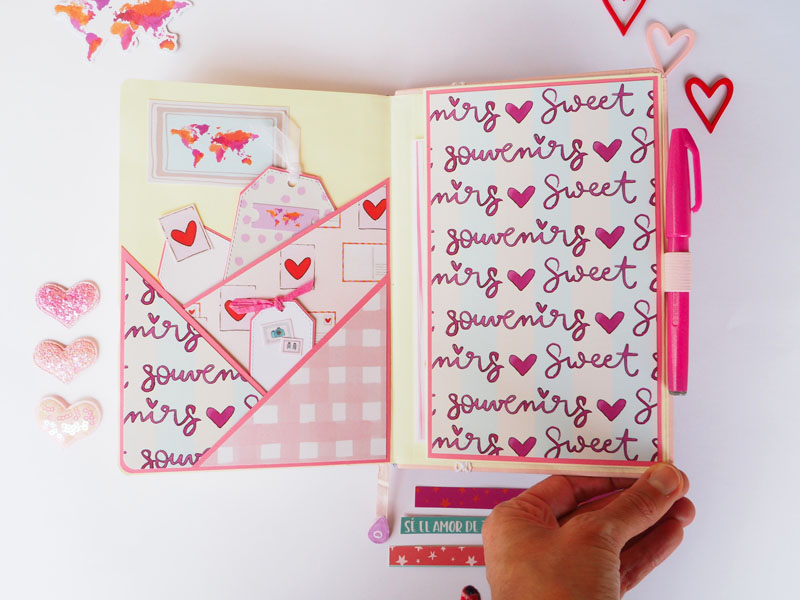 nirs
souven
nirs
souve
nirs Sweet
souvenirs S
nirs Sweet
souvenirs S
nirs Sweet
souvenirs S
nirs Sweet
souvenirs S
nirs Sweet
SÉ EL AMOR DE